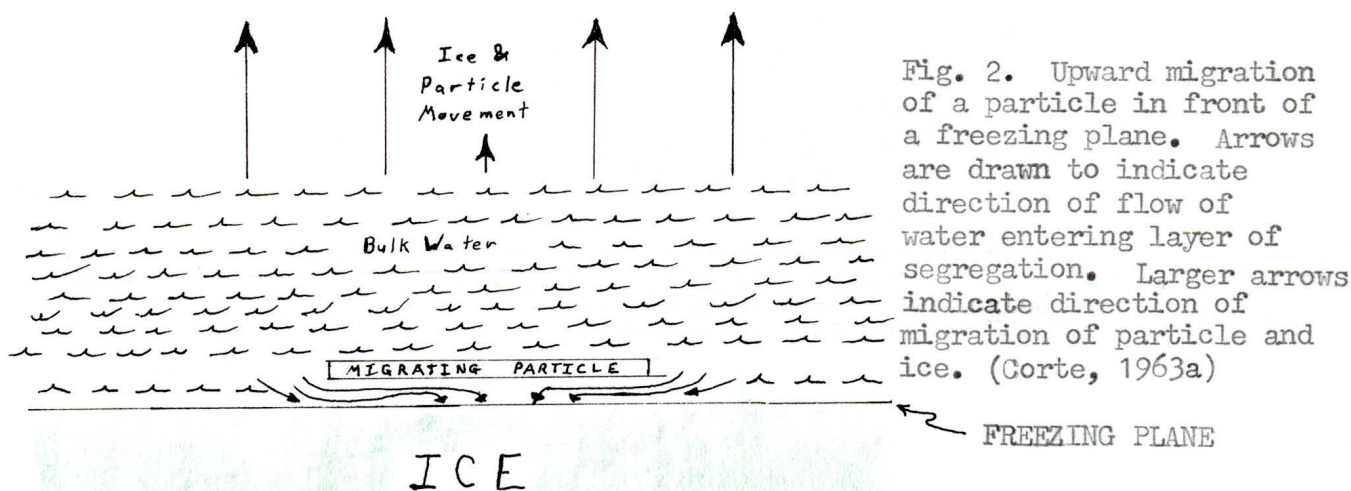 Ice &
Particle
Movement
Bulk Water
MIGRATING PARTICLE
ICE
Fig. 2. Upward migration
of a particle in front of
a freezing plane. Arrows
are drawn to indicate
direction of flow of
water entering layer of
segregation. Larger arrows
indicate direction of
migration of particle and
ice. (Corte, 1963a)
FREEZING PLANE